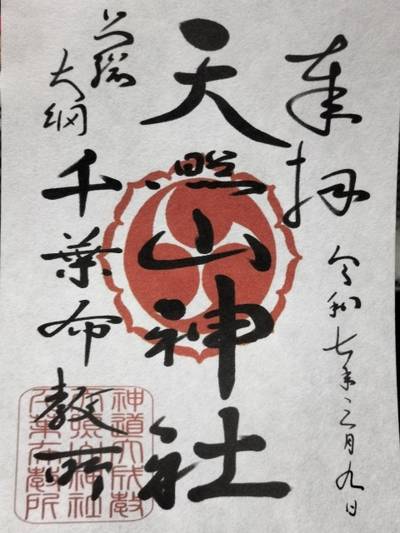 奉拝
令和七年三月九日
天照山神社
上総
大網
千葉布教所
神道大成教
天照山神社
千葉布教所